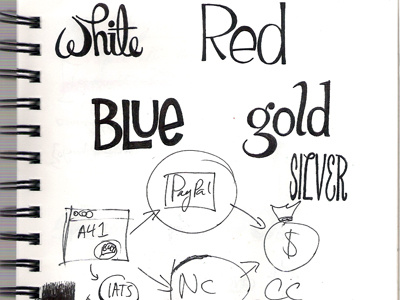 White Red
BLUE gold
SILVER
PayPal
A41
$
IATS NC CC